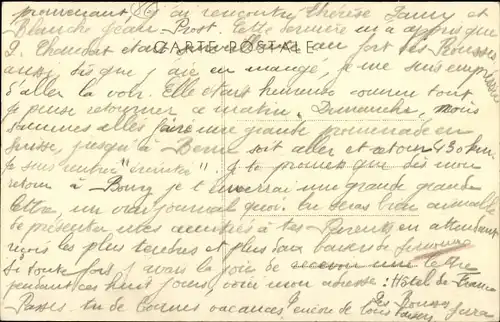 promenant (86) j'ai rencontré Thérèse Jamy et
Blanche Jean-Prost. Cette dernière m'a appris que
J. Chamont était au fort les Rousses
CARTE POSTALE
aussi dès que j'ai eu mangé, je me suis empressée
d'aller la voir. Elle était heureuse comme tout
je pense retourner ce matin. Dimanche, nous
sommes allés faire une grande promenade en
Suisse, jusqu'à Berne soit aller et retour 430 km.
Je suis rentrée "éreintée". Je te promets que dès mon
retour à Bourg je t'enverrai une grande grande
lettre, un vrai journal quoi. Tu seras bien aimable
de présenter mes amitiés à tes Parents en attendant
reçois les plus tendres et plus doux baisers de
Si toute fois j'avais la joie de recevoir une lettre
pendant ces huit jours, voici mon adresse : Hôtel de France
Les Rousses
Jura
Passes-tu de bonnes vacances, encore de bons baisers